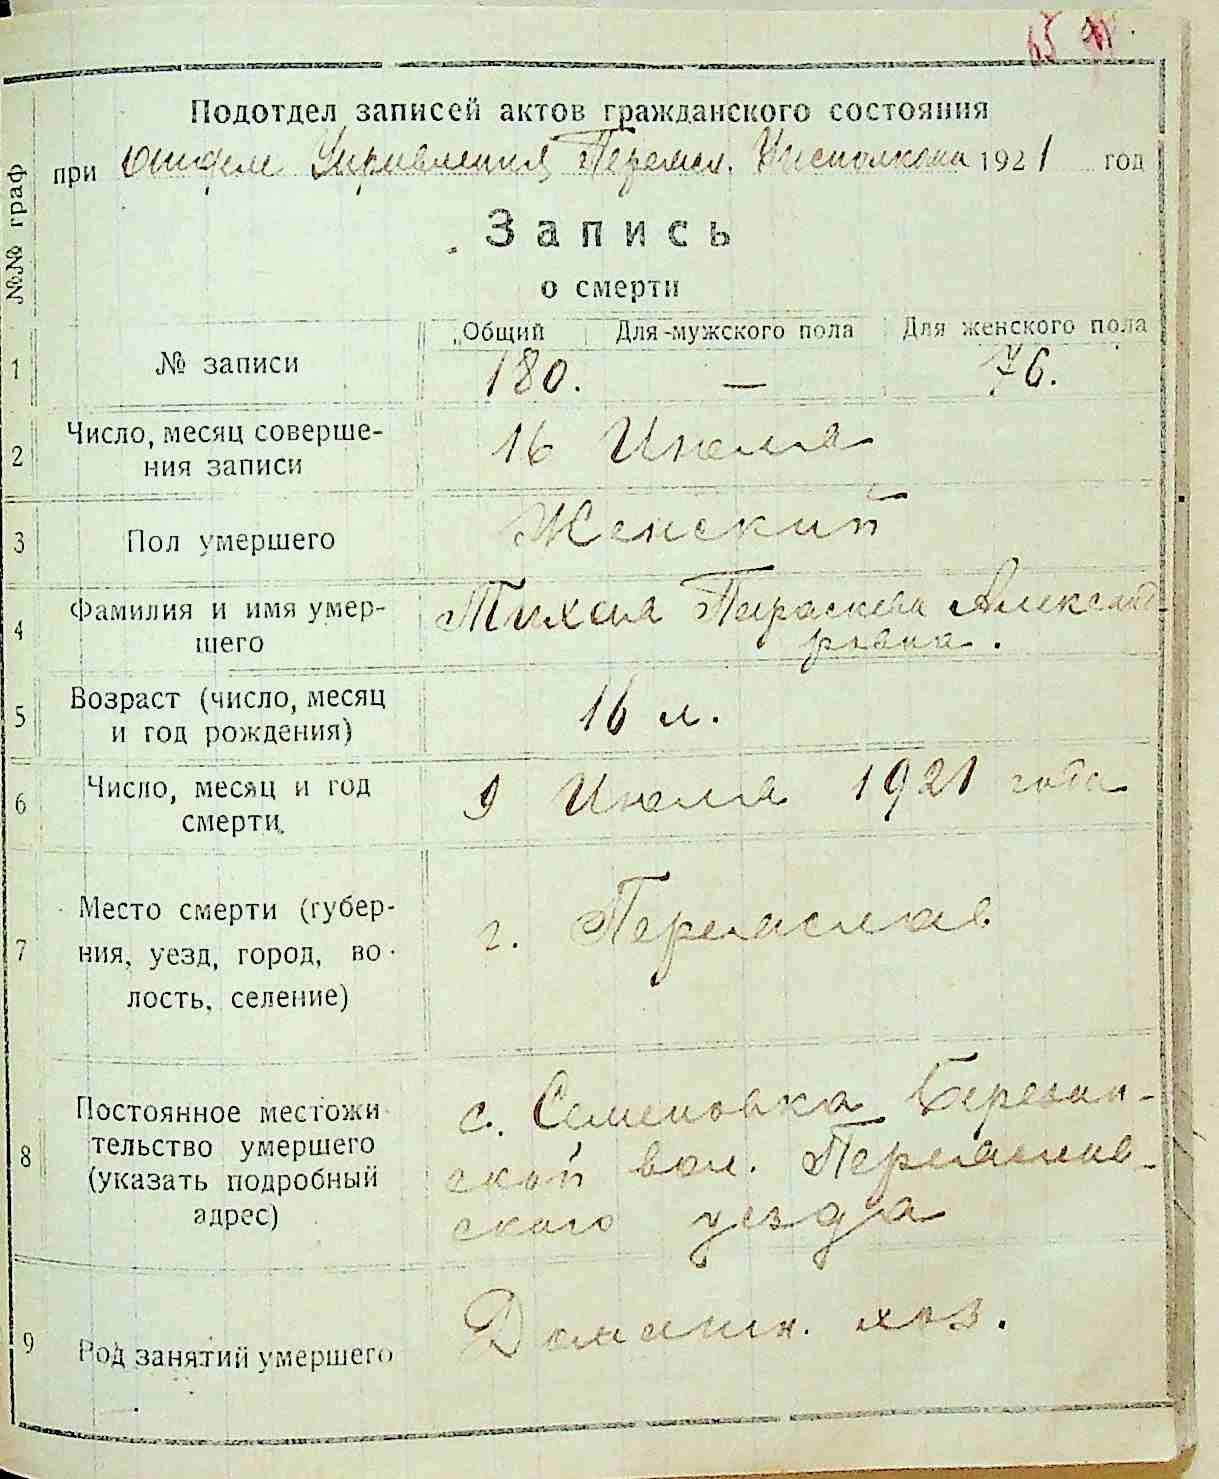 65
Подотдел записей актов гражданского состояния
при отделе Управления Переясл. Исполкома 1921 год
Запись
о смерти
№№ граф
Общий Для мужского пола Для женского пола
1 № записи 180. — 76.
2 Число, месяц соверше-
ния записи
16 Июля
3 Пол умершего Женский
4 Фамилия и имя умер-
шего
Тихая Параскева Александ-
ровна.
5 Возраст (число, месяц
и год рождения)
16 л.
6 Число, месяц и год
смерти
9 Июля 1921 года
7 Место смерти (губер-
ния, уезд, город, во-
лость, селение)
г. Переяслав
8 Постоянное местожи
тельство умершего
(указать подробный
адрес)
с. Семеновка Березан-
ской вол. Переяслав-
ского уезда
9 Род занятий умершего
Домашн. хоз.